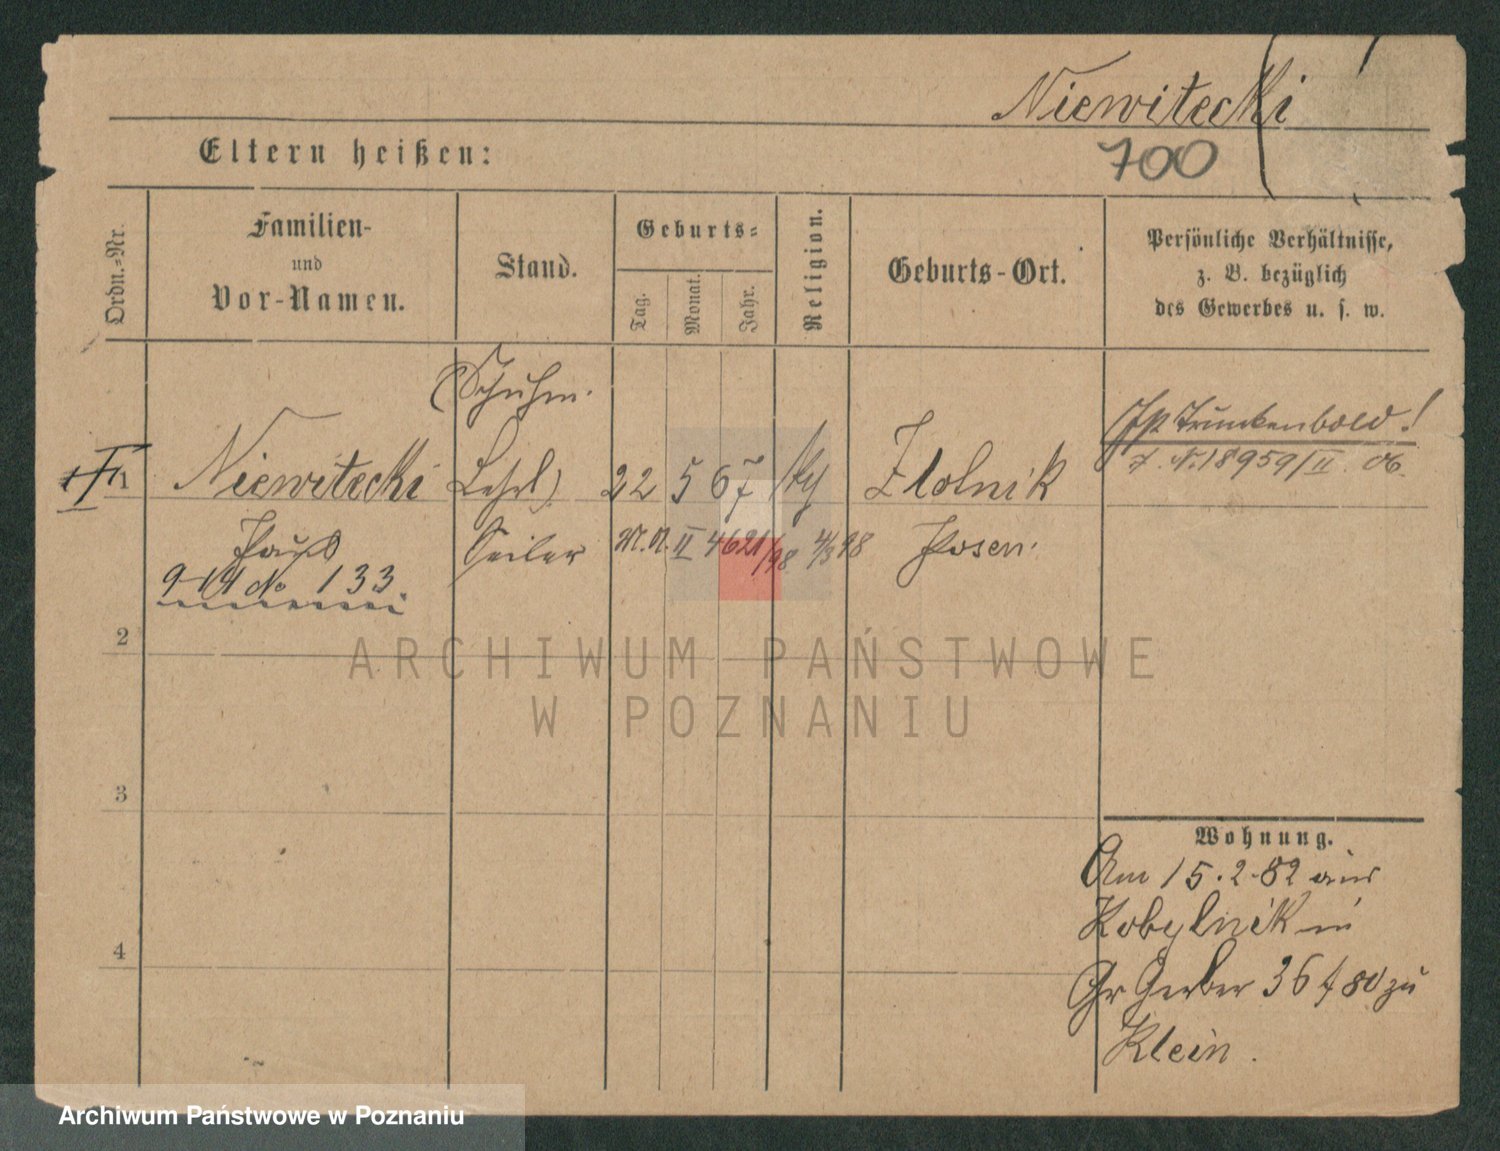 Niewitecki
Eltern heißen:
700
Ordn.=Nr.
Familien-
und
Vor-Namen.
Stand.
Geburts=
Tag.
Monat.
Jahr.
Religion.
Geburts-Ort.
Persönliche Verhältnisse,
z. B. bezüglich
des Gewerbes u. s. w.
(Schuhm.
Ist Trunkenbold!
1 Niewitecki Lehrl) 22 5 67 Zlolnik
J. N. 18959/II. 06.
Paul Seiler II 4621/98 4/3 98 Posen.
9 14 No 133
2
ARCHIWUM PAŃSTWOWE
W POZNANIU
3
Wohnung.
Am 15.2.82 aus
Kobylnik in
4
Gr Gerber 36 f 80 zu
Klein.
Archiwum Państwowe w Poznaniu